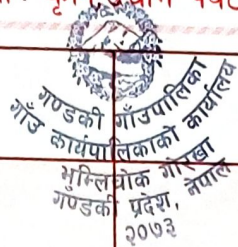 गण्डकी गाँउपालिका
गाँउ कार्यपालिकाको कार्यालय
भुम्लिचोक गोरखा
गण्डकी प्रदेश, नेपाल
२०७३